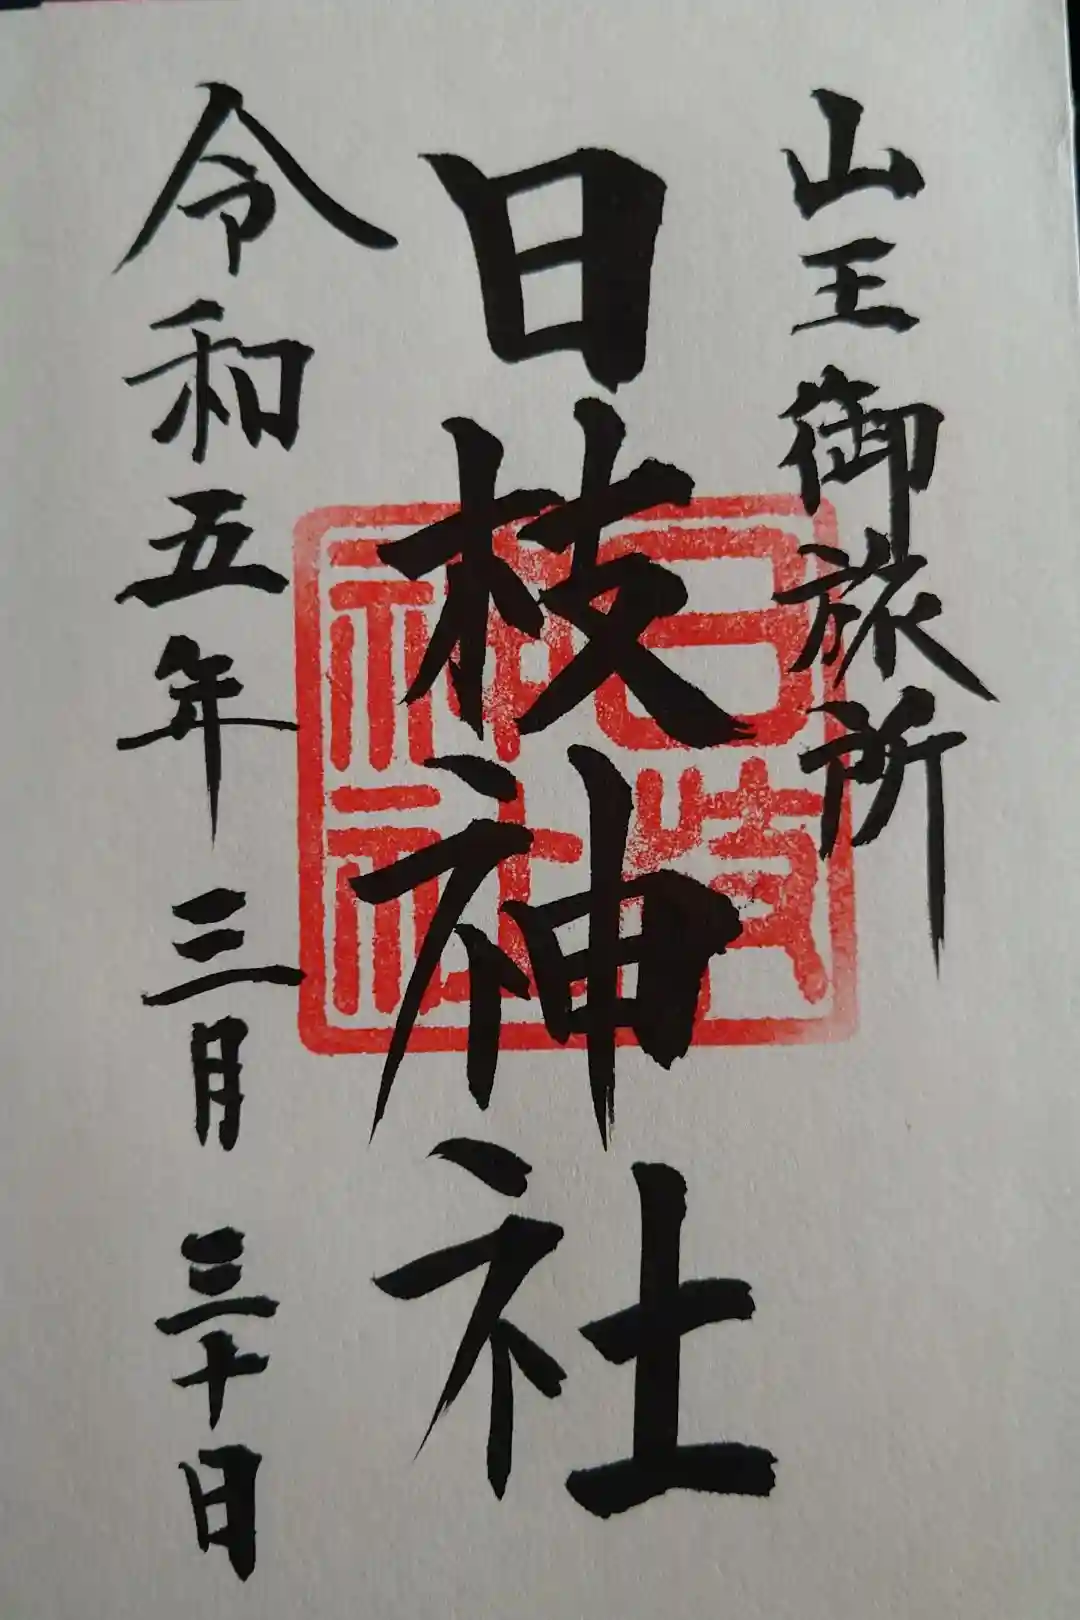 山王御旅所
日枝神社
日枝神社
令和五年三月三十日